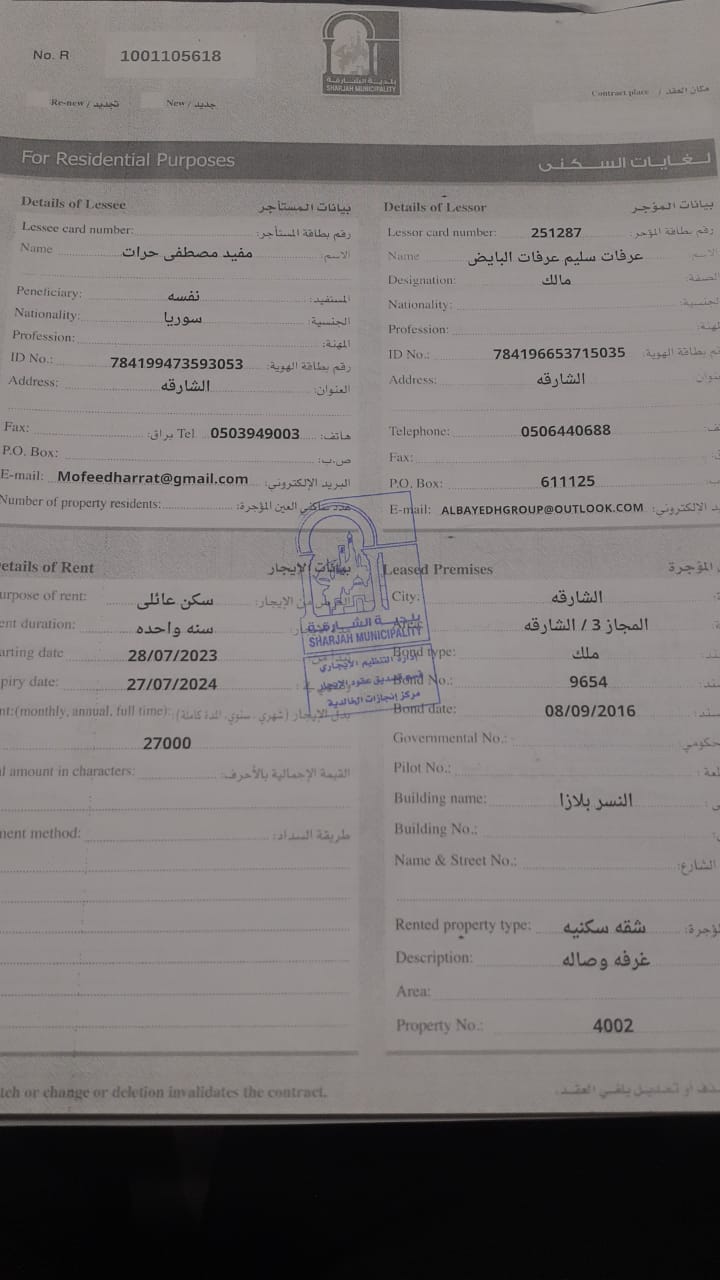 No. R 1001105618
بلدية الشارقة
SHARJAH MUNICIPALITY
Re-new / تجديد New / جديد
Contract place / مكان العقد
For Residential Purposes لغايات السكنى
Details of Lessee بيانات المستأجر
Lessee card number: رقم بطاقة المستأجر:
Name مفيد مصطفى حرات الاسم:
Peneficiary: نفسه المستفيد:
Nationality: سوريا الجنسية:
Profession: المهنة:
ID No.: 784199473593053 رقم بطاقة الهوية:
Address: الشارقه العنوان:
Fax: براق: Tel 0503949003 هاتف:
P.O. Box: ص.ب:
E-mail: Mofeedharrat@gmail.com البريد الإلكتروني:
Number of property residents: عدد ساكني العين المؤجرة:
Details of Lessor بيانات المؤجر
Lessor card number: 251287 رقم بطاقة المؤجر:
Name عرفات سليم عرفات البايض الاسم:
Designation: مالك الصفة:
Nationality: الجنسية:
Profession:
ID No.: 784196653715035 م بطاقة الهوية:
Address: الشارقه
Telephone: 0506440688
Fax:
P.O. Box: 611125
E-mail: ALBAYEDHGROUP@OUTLOOK.COM يد الالكتروني:
etails of Rent بيانات الإيجار
urpose of rent: سكن عائلى من الإيجار:
ent duration: سنه واحده
arting date 28/07/2023
piry date: 27/07/2024
nt:(monthly, annual, full time): بدل الإيجار (شهري، سنوي، المدة كاملة):
27000
l amount in characters: القيمة الإجمالية بالأحرف:
ment method: طريقة السداد:
بلدية الشارقة
SHARJAH MUNICIPALITY
إدارة التنظيم الايجاري
قسم تصديق عقود الايجار
مركز إنجازات الخالدية
Leased Premises المؤجرة
City: الشارقه
Area: المجاز 3 / الشارقه
Bond type: ملك
Bond No.: 9654
Bond date: 08/09/2016
Governmental No.: حكومي:
Pilot No.:
Building name: النسر بلازا
Building No.:
Name & Street No.: الشارع:
Rented property type: شقه سكنيه ؤجرة:
Description: غرفه وصاله
Area:
Property No.: 4002
tch or change or deletion invalidates the contract. ذف أو تعديل يلغي العقد.